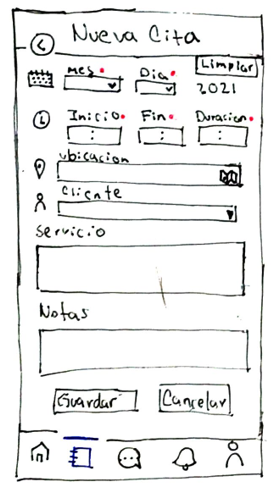 Nueva Cita
Limpiar
Mes Dia 2021
Inicio Fin Duracion
: : :
ubicacion
cliente
Servicio
Notas
Guardar Cancelar